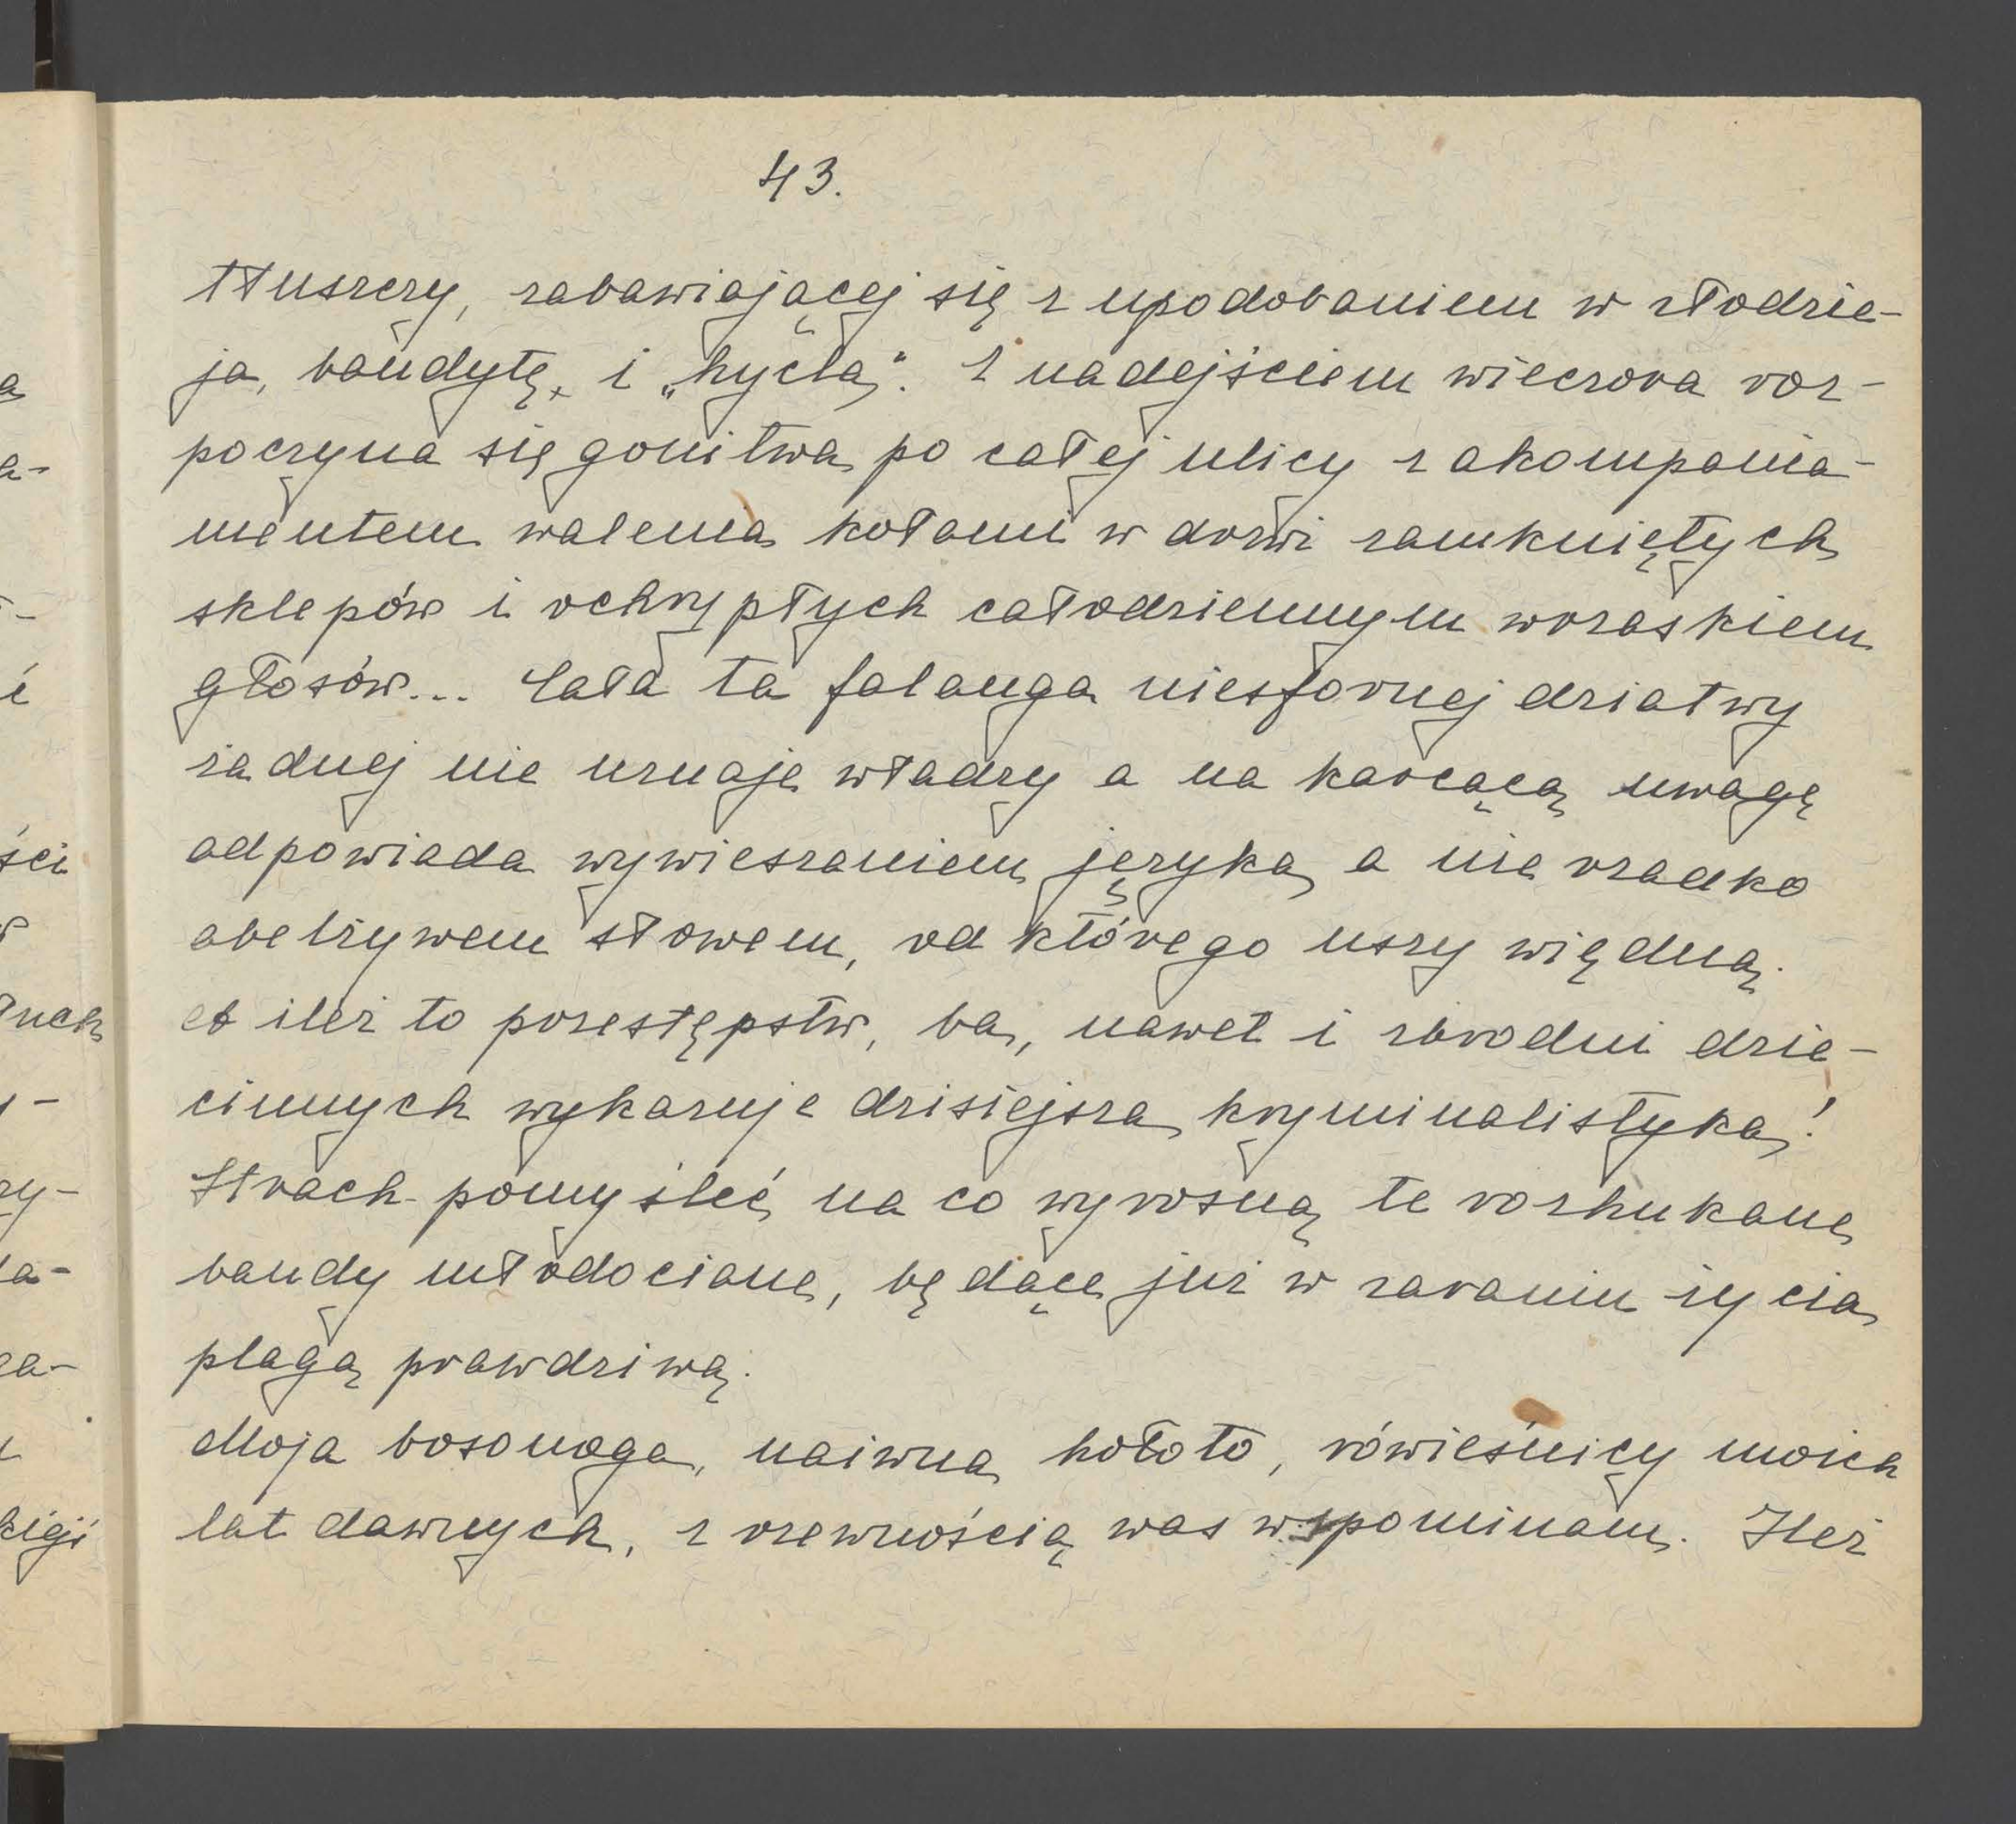 43.
tłuszczy, zabawiającej się z upodobaniem w złodzie-
ja, bandytę i „hycla". Z nadejściem wieczora roz-
poczyna się gonitwa po całej ulicy z akompania-
mentem walenia kołami w drzwi zamkniętych
sklepów i ochrypłych całodziennym wrzaskiem
głosów... Cała ta falanga niesfornej dziatwy
żadnej nie uznaje władzy a na karcącą uwagę
odpowiada wywieszaniem języka a nie rzadko
obelżywem słowem, od którego uszy więdną.
A ileż to przestępstw, ba, nawet i zbrodni dzie-
cinnych wykazuje dzisiejsza kryminalistyka!
Strach pomyśleć na co wyrosną te rozhukane
bandy młodociane, będące już w zaraniu życia
plagą prawdziwą.
Moja bosonoga, naiwna hołoto, rówieśnicy moich
lat dawnych, z rzewnością was wspominam. Ileż
ści